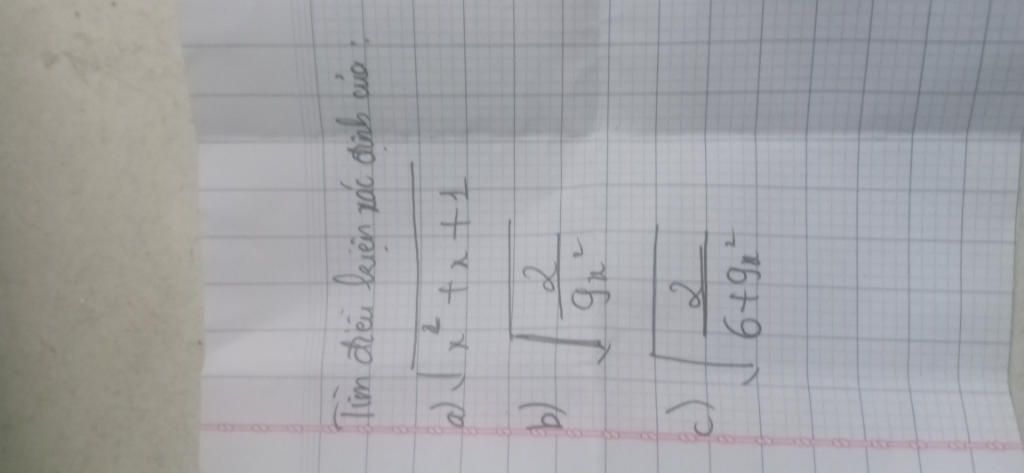 Tìm điều kiện xác định của:
a) √(x² + x + 1)
b) √(2/(9x²))
c) √(2/(6+9x²))